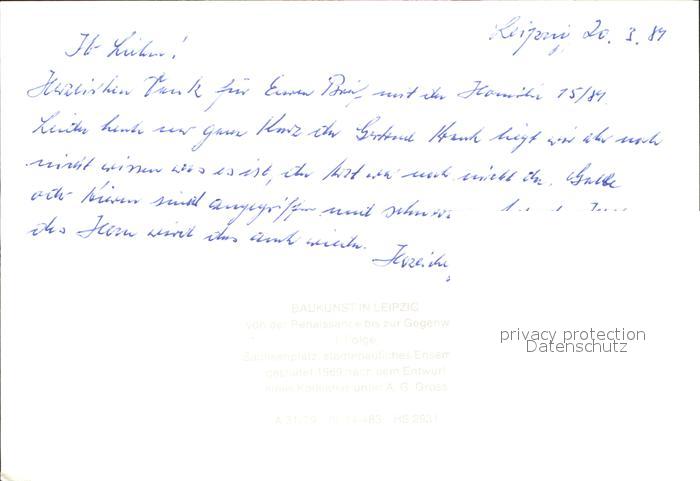 Leipzig, 20. 3. 81
Ihr Lieben!
Herzlichen Dank für Euren Brief mit der 15/81.
Leider heute nur ganz kurz da Gertrud krank liegt wir aber noch
nicht wissen was es ist, der Arzt war noch nicht da. Galle
oder Nieren sind angegriffen und
des Herrn wird das auch wieder.
BAUKUNST IN LEIPZIG
von der Renaissance bis zur Gegenw
1. Folge
Sachsenplatz, städtebauliches Ensem
gestaltet 1969 nach dem Entwurf
eines Kollektivs unter A. G. Gross
HS 2931
privacy protection
Datenschutz